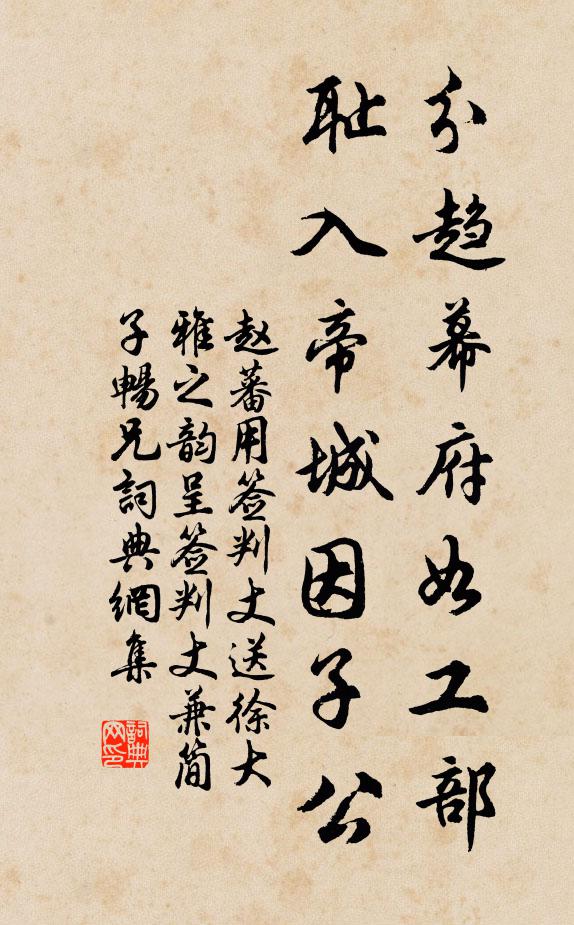 分趋幕府如工部
耻入帝城因子公
赵蕃用签判丈送徐大
雅之韵呈签判丈兼简
子暢兄詞典網集
詞典网印